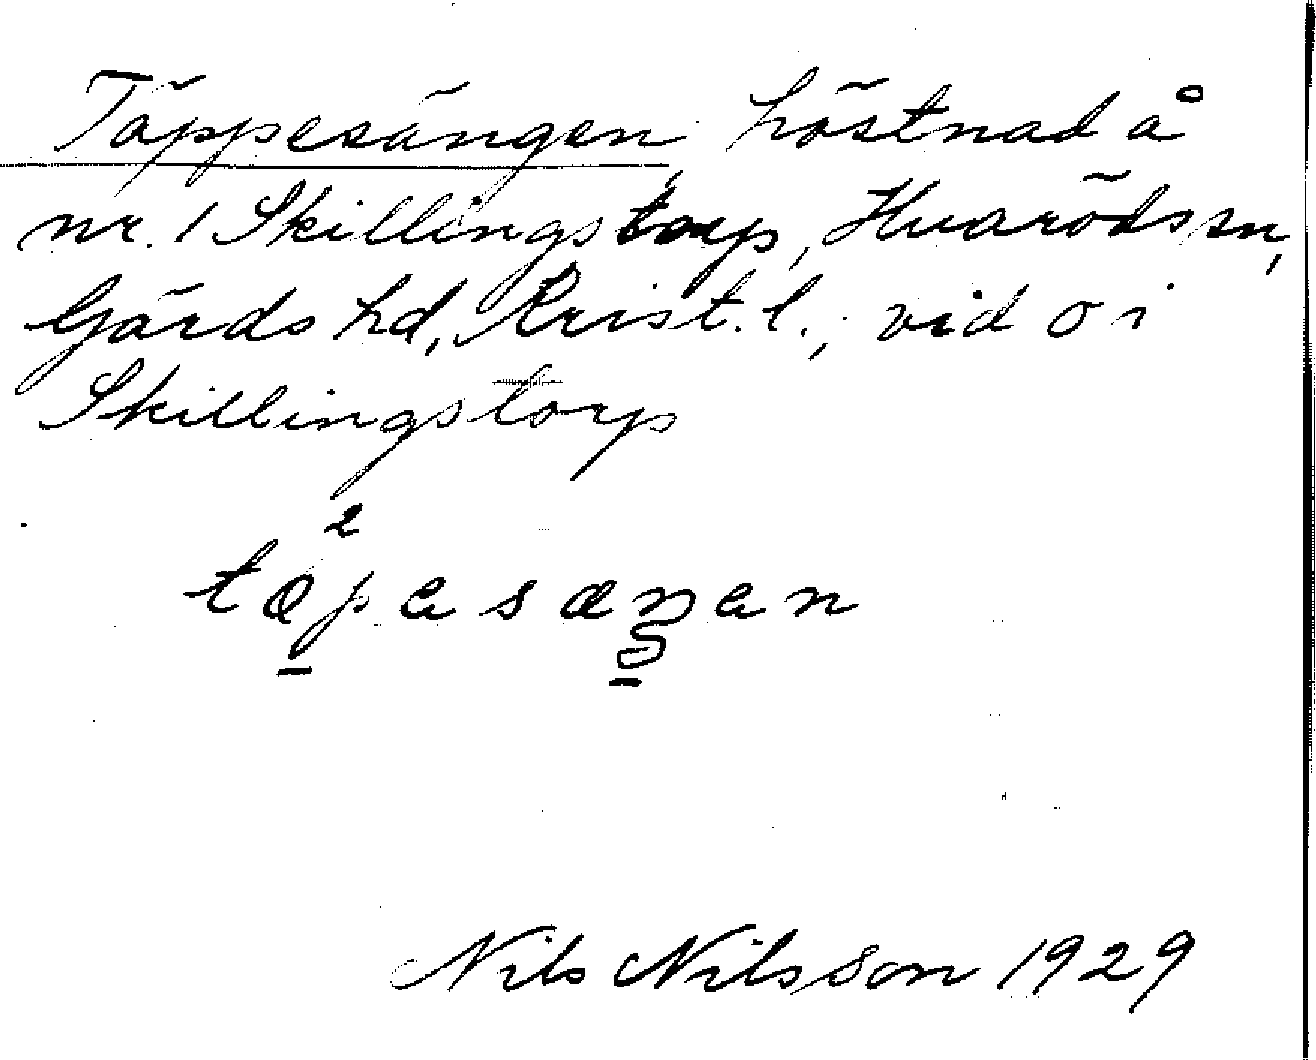 Täppesängen, höstnad å
nr. 1 Skillingstorp, Huarödssn,
Gärds hd, Krist. l., vid o i
Skillingstorp
2
tæpesæŋen
Nils Nilsson 1929